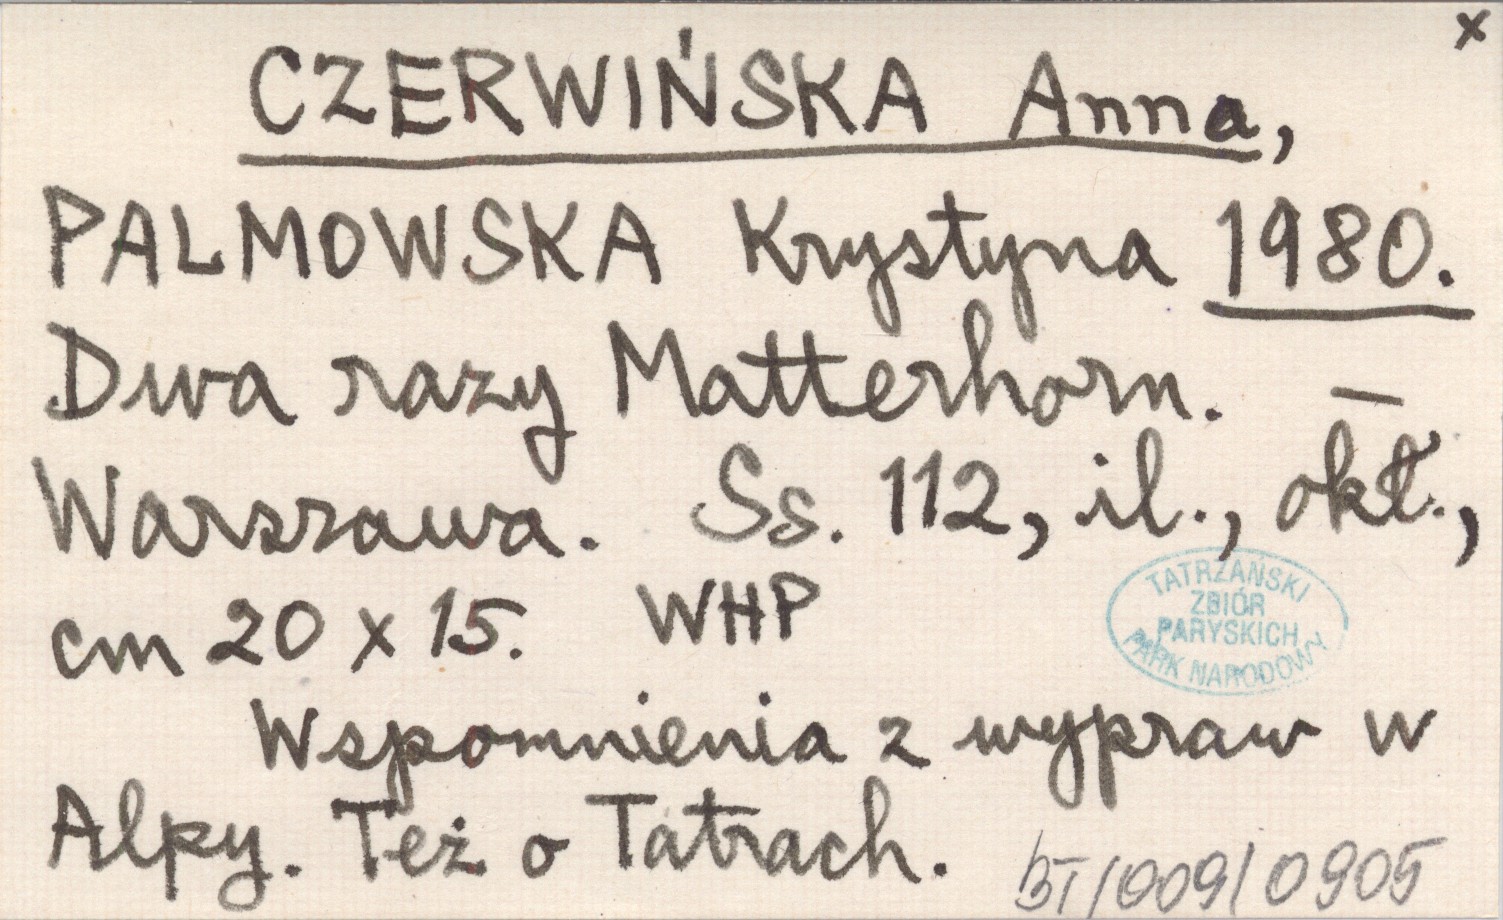 x
CZERWIŃSKA Anna,
PALMOWSKA Krystyna 1980.
Dwa razy Matterhorn. —
Warszawa. Ss. 112, il., okł.,
cm 20 x 15. WHP
TATRZAŃSKI
ZBIÓR
PARYSKICH
PARK NARODOWY
Wspomnienia z wypraw w
Alpy. Też o Tatrach.
BT/009/0905